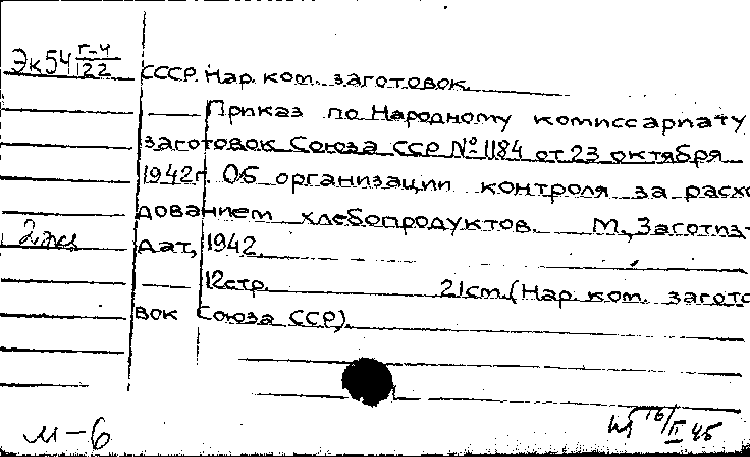 Эк54 Г-4/122
СССР. Нар. ком. заготовок.
Приказ по Народному комиссариату
заготовок Союза ССР № 1184 от 23 октября
1942г. Об организации контроля за расхо-
дованием хлебопродуктов. М., Заготиз-
дат, 1942.
2 экз
12стр. 21см. (Нар. ком. загото-
вок Союза ССР).
м-6
16/II 45